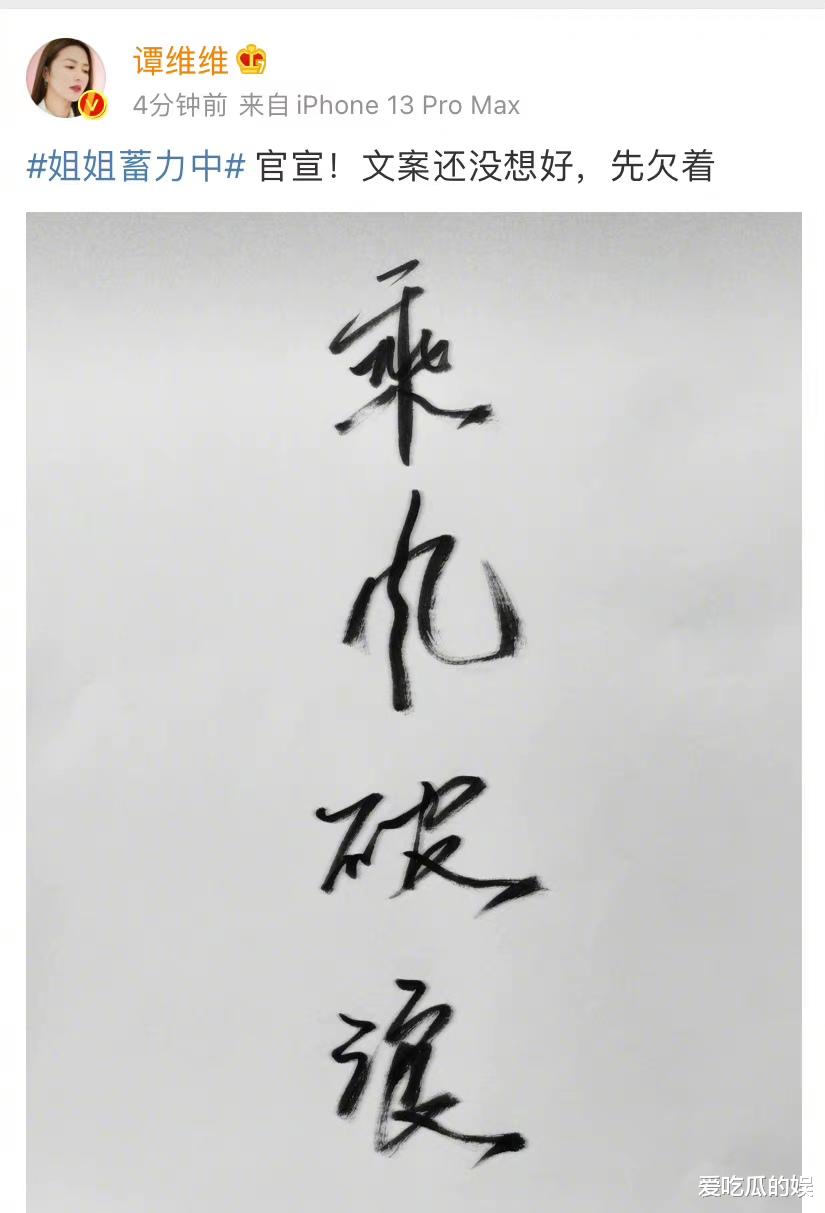 谭维维
4分钟前 来自 iPhone 13 Pro Max
#姐姐蓄力中# 官宣！文案还没想好，先欠着
乘
风
破
浪
爱吃瓜的娱